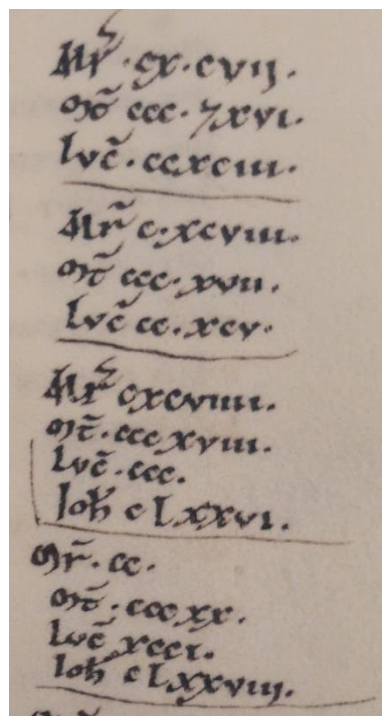 Mr̃ · cx · cvij ·
mt̃ ccc · ⁊xvi ·
lvc̃ · ccxciii ·
Mr̃ c · xcviii ·
mt̃ ccc · xvii ·
lvc̃ cc · xcv ·
Mr̃ cxcviiii ·
mt̃ · cccxviii ·
lvc̃ · ccc ·
Ioh̃ c lxxvi ·
mr̃ · cc ·
mt̃ · cccxx ·
lvc̃ xccı ·
Ioh̃ c lxxviij ·